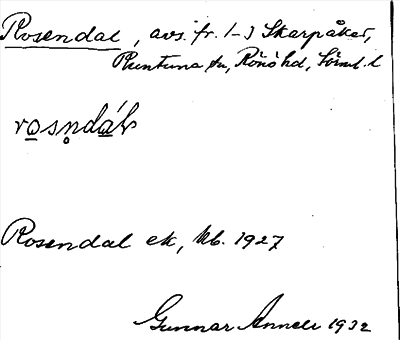 Rosendal, avs. fr. 1-3 Skarpåker,
Runtuna sn, Rönö hd, Sörml. l
rosndál
Rosendal ek, kb. 1927
Gunnar Annell 1932